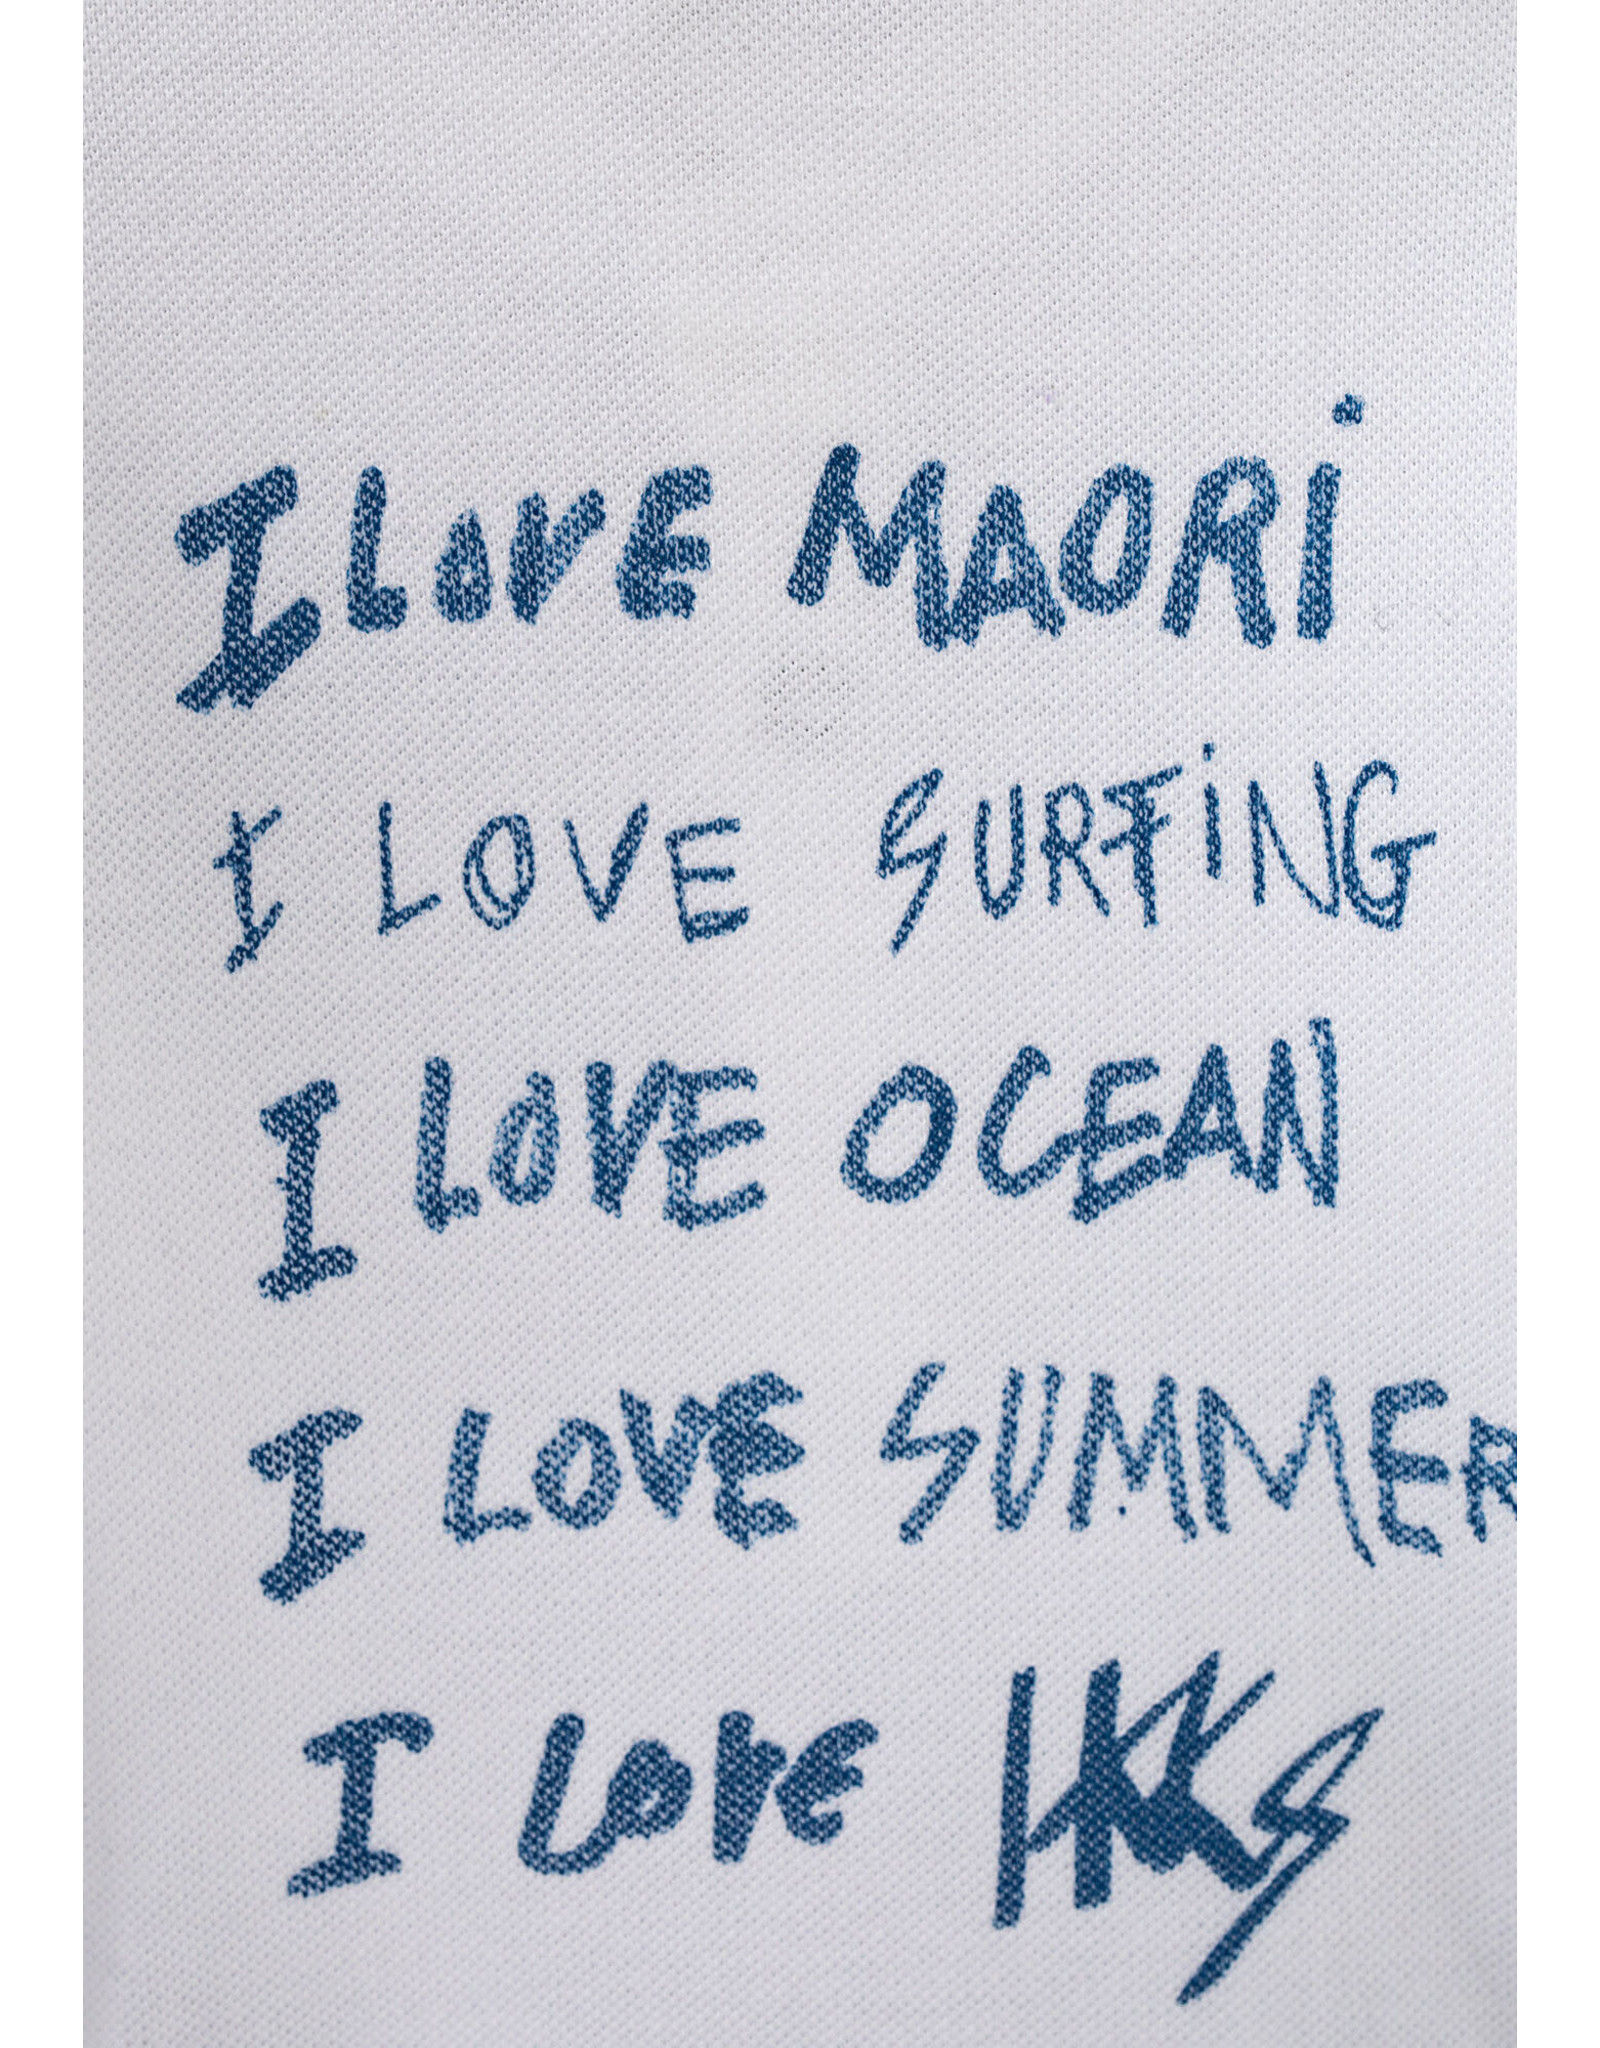 I LOVE MAORi
I LOVE SURFiNG
I LOVE OCEAN
I LOVE SUMMER
I LOVE HKS